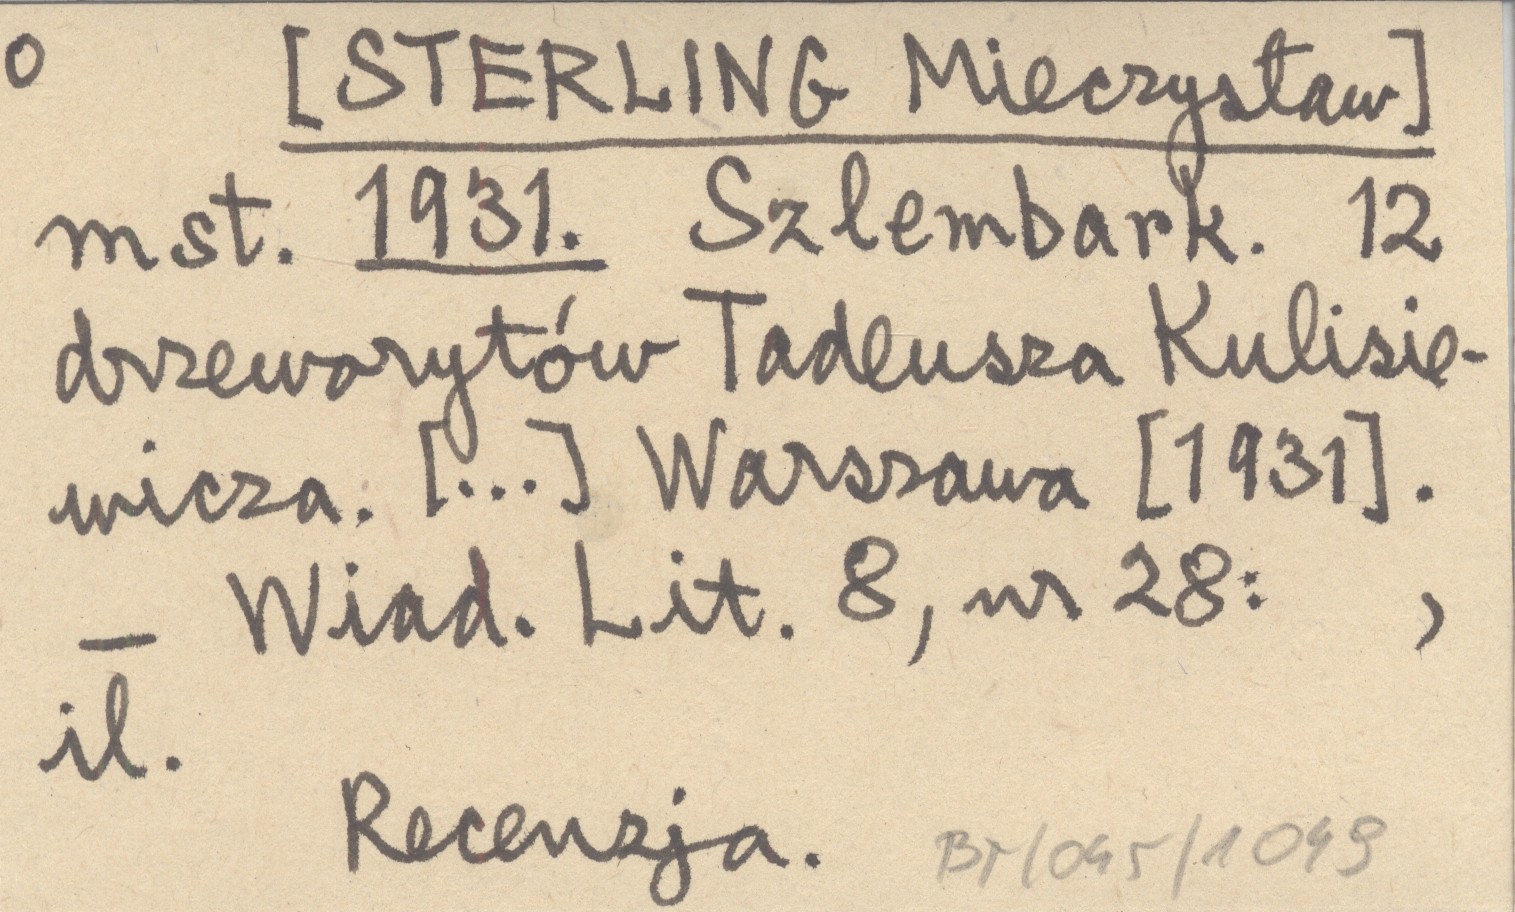 o [STERLING Mieczysław]
mst. 1931. Szlembark. 12
drzeworytów Tadeusza Kulisie-
wicza. [...] Warszawa [1931].
— Wiad. Lit. 8, nr 28: ,
il.
Recenzja. BT/045/1049